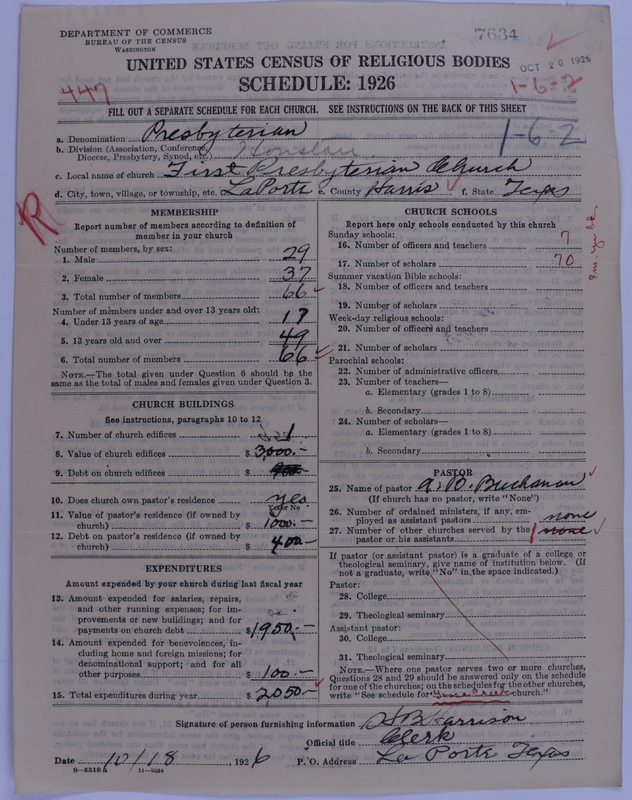 DEPARTMENT OF COMMERCE
BUREAU OF THE CENSUS
WASHINGTON
7634
UNITED STATES CENSUS OF RELIGIOUS BODIES
OCT 20 1926
SCHEDULE: 1926
1-6-2
447
FILL OUT A SEPARATE SCHEDULE FOR EACH CHURCH. SEE INSTRUCTIONS ON THE BACK OF THIS SHEET
a. Denomination Presbyterian
1-6-2
b. Division (Association, Conference,
Diocese, Presbytery, Synod, etc.) Houston
c. Local name of church First Presbyterian Church
d. City, town, village, or township, etc. LaPorte e. County Harris f. State Texas
R
MEMBERSHIP
Report number of members according to definition of
member in your church
Number of members, by sex:
1. Male 29
2. Female 37
3. Total number of members 66
Number of members under and over 13 years old:
4. Under 13 years of age 17
5. 13 years old and over 49
6. Total number of members 66
NOTE.—The total given under Question 6 should be the
same as the total of males and females given under Question 3.
CHURCH BUILDINGS
See instructions, paragraphs 10 to 12
7. Number of church edifices 1
8. Value of church edifices $ 3,000.-
9. Debt on church edifices $
10. Does church own pastor's residence yes
Yes or No
11. Value of pastor's residence (if owned by
church) $ 1000.-
12. Debt on pastor's residence (if owned by
church) $ 400.-
EXPENDITURES
Amount expended by your church during last fiscal year
13. Amount expended for salaries, repairs,
and other running expenses; for im-
provements or new buildings; and for
payments on church debt $ 1950.-
14. Amount expended for benevolences, in-
cluding home and foreign missions; for
denominational support; and for all
other purposes $ 100.-
15. Total expenditures during year $ 2,050.-
CHURCH SCHOOLS
Report here only schools conducted by this church
Sunday schools:
16. Number of officers and teachers 7
17. Number of scholars 70
Summer vacation Bible schools:
18. Number of officers and teachers
19. Number of scholars
Week-day religious schools:
20. Number of officers and teachers
21. Number of scholars
Parochial schools:
22. Number of administrative officers
23. Number of teachers—
a. Elementary (grades 1 to 8)
b. Secondary
24. Number of scholars—
a. Elementary (grades 1 to 8)
b. Secondary
PASTOR
25. Name of pastor Buchanan
(If church has no pastor, write "None")
26. Number of ordained ministers, if any, em-
ployed as assistant pastors none
27. Number of other churches served by the
pastor or his assistants 1 none
If pastor (or assistant pastor) is a graduate of a college or
theological seminary, give name of institution below. (If
not a graduate, write "No" in the space indicated.)
Pastor:
28. College
29. Theological seminary
Assistant pastor:
30. College
31. Theological seminary
NOTE.—Where one pastor serves two or more churches,
Questions 28 and 29 should be answered only on the schedule
for one of the churches; on the schedules for the other churches,
write "See schedule for Creek church."
Signature of person furnishing information Harrison
Official title Clerk
Date 10/18, 1926 P. O. Address La Porte Texas
8-5518 a 11-9054